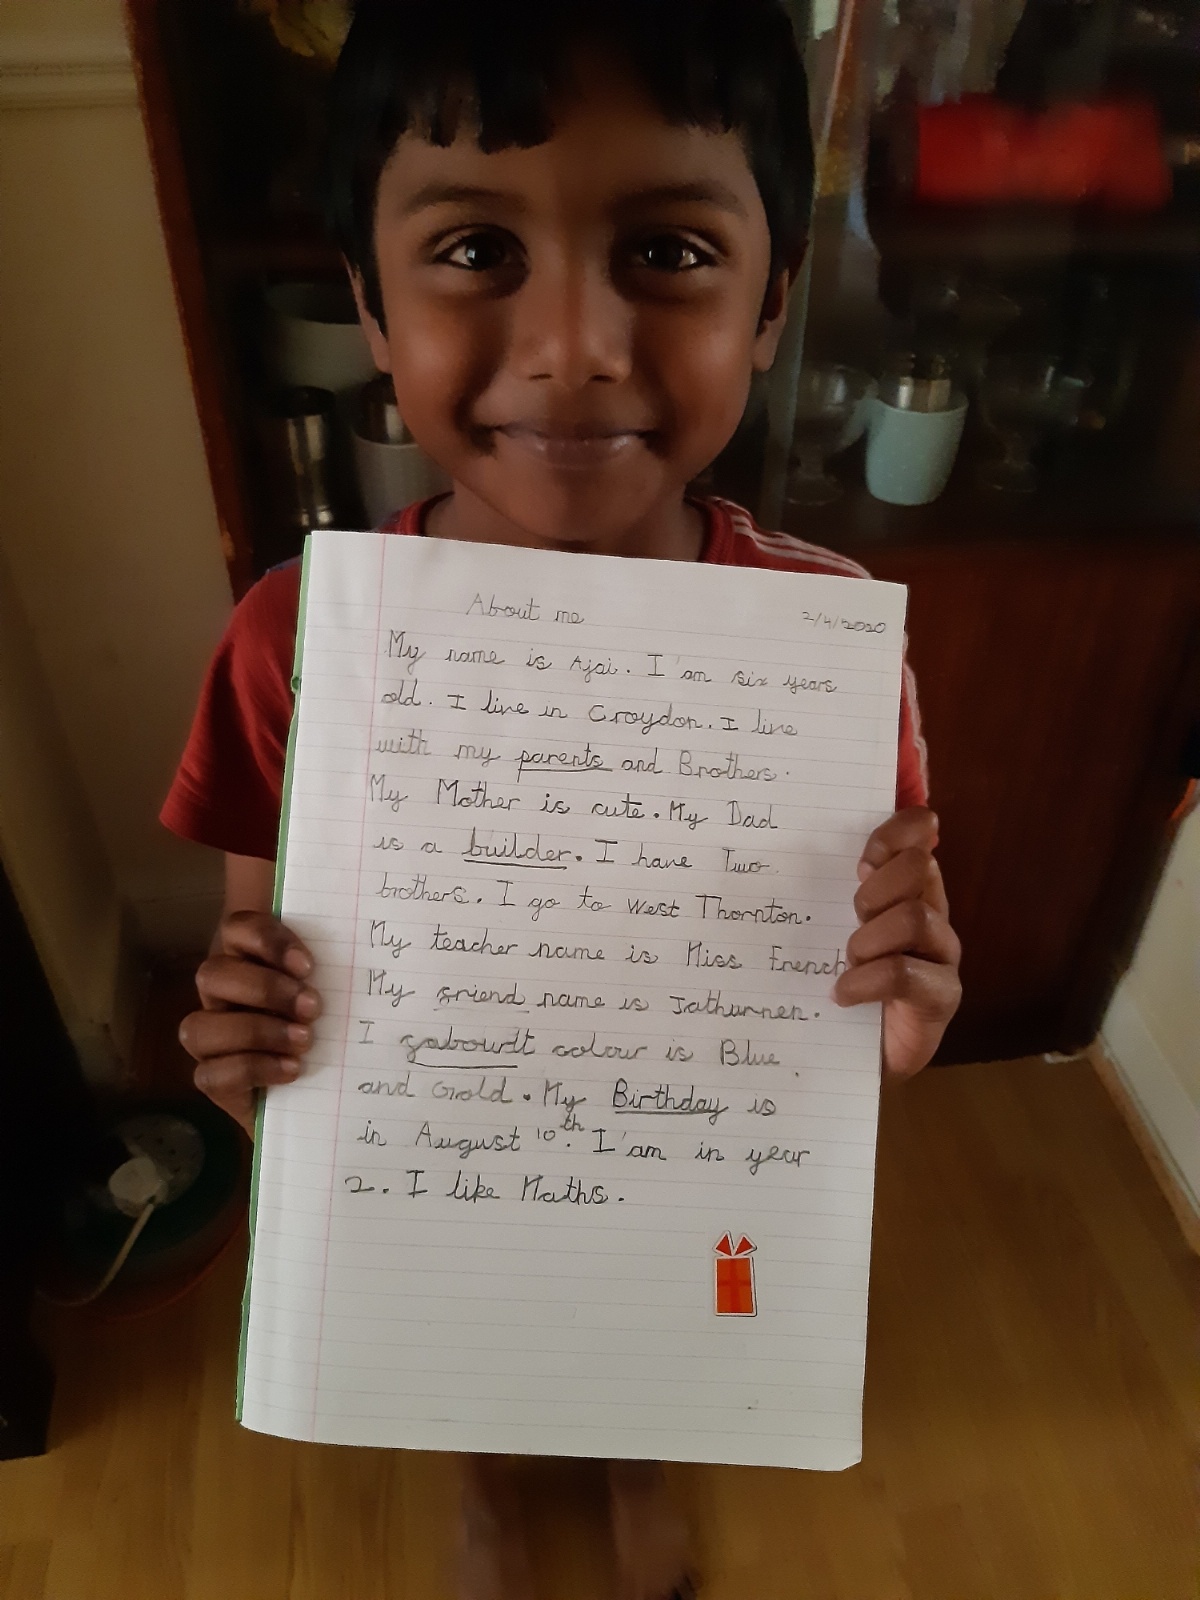 About me 2/4/2020
My name is Ajai. I'am six years
old. I live in Croydon. I live
with my parents and Brothers.
My Mother is cute. My Dad
is a builder. I have Two
brothers. I go to West Thornton.
My teacher name is Miss French
My griend name is Jathurnen.
I gabourdt colour is Blue.
and Gold. My Birthday is
in August 10th. I'am in year
2. I like Maths.